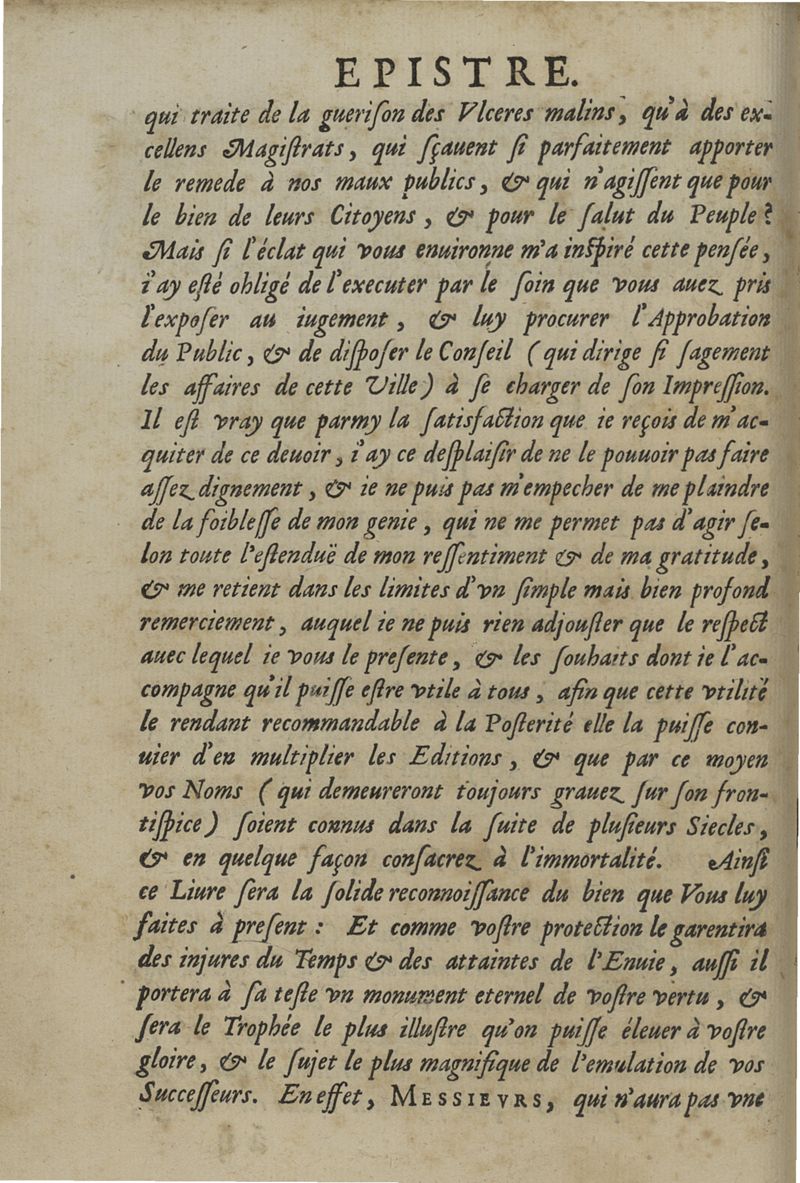 EPISTRE.
qui traite de la gueriſon des Vlceres malins, qu'à des ex-
cellens Magiſtrats, qui ſçauent ſi parfaitement apporter
le remede à nos maux publics, & qui n'agiſſent que pour
le bien de leurs Citoyens, & pour le ſalut du Peuple?
Mais ſi l'éclat qui vous enuironne m'a inſpiré cette penſée,
i'ay eſté obligé de l'executer par le ſoin que vous auez pris
l'expoſer au iugement, & luy procurer l'Approbation
du Public, & de diſpoſer le Conſeil (qui dirige ſi ſagement
les affaires de cette Ville) à ſe charger de ſon Impreſſion.
Il eſt vray que parmy la ſatisfaction que ie reçois de m'ac-
quiter de ce deuoir, i'ay ce deſplaiſir de ne le pouuoir pas faire
aſſez dignement, & ie ne puis pas m'empecher de me plaindre
de la foibleſſe de mon genie, qui ne me permet pas d'agir ſe-
lon toute l'eſtenduë de mon reſſentiment & de ma gratitude,
& me retient dans les limites d'vn ſimple mais bien profond
remerciement, auquel ie ne puis rien adjouſter que le reſpect
auec lequel ie vous le preſente, & les ſouhaits dont ie l'ac-
compagne qu'il puiſſe eſtre vtile à tous, afin que cette vtilité
le rendant recommandable à la Poſterité elle la puiſſe con-
uier d'en multiplier les Editions, & que par ce moyen
vos Noms (qui demeureront toujours grauez ſur ſon fron-
tiſpice) ſoient connus dans la ſuite de pluſieurs Siecles,
& en quelque façon conſacrez à l'immortalité. Ainſi
ce Liure ſera la ſolide reconnoiſſance du bien que Vous luy
faites à preſent : Et comme voſtre protection le garentira
des injures du Temps & des attaintes de l'Enuie, auſſi il
portera à ſa teſte vn monument eternel de voſtre vertu, &
ſera le Trophée le plus illuſtre qu'on puiſſe éleuer à voſtre
gloire, & le ſujet le plus magnifique de l'emulation de vos
Succeſſeurs. En effet, MESSIEVRS, qui n'aura pas vne